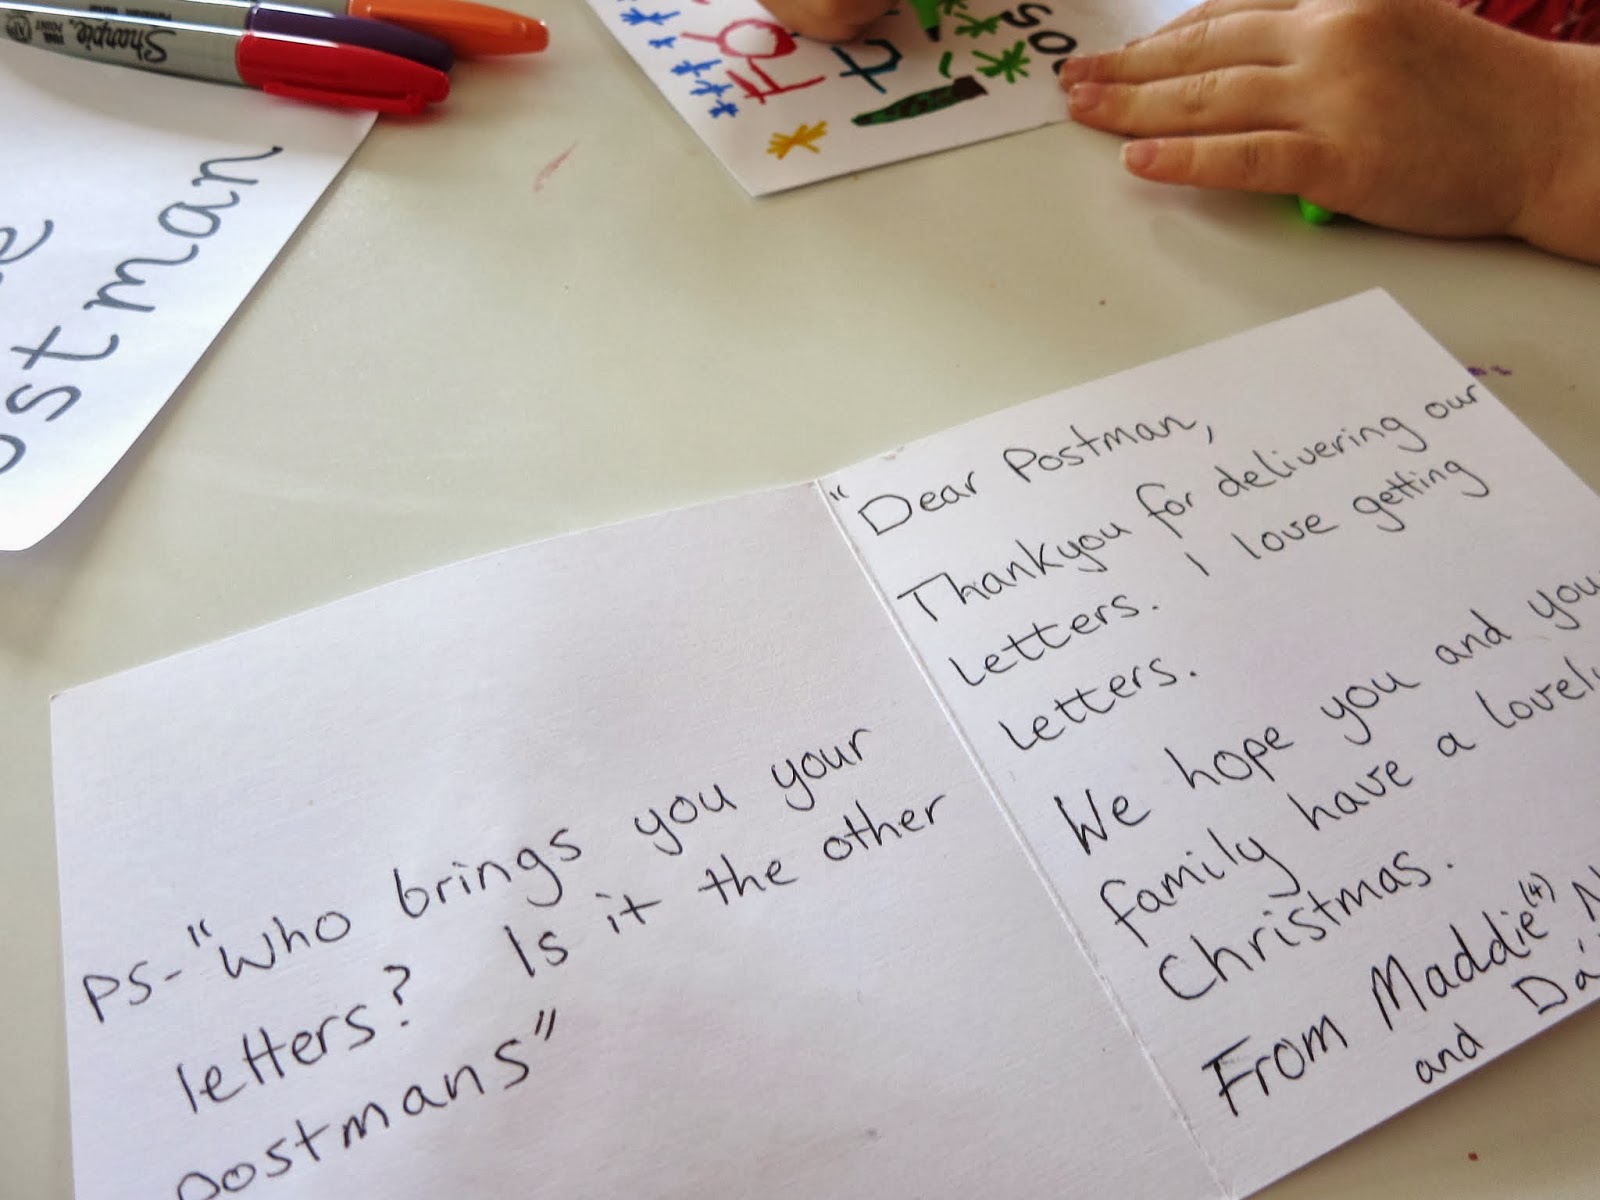 Sharpie
ostman
"Dear Postman,
Thankyou for delivering our
letters. I love getting
letters.
We hope you and you
family have a lovel
Christmas.
From Maddie (4)
and
PS-"Who brings you your
letters? Is it the other
postmans"